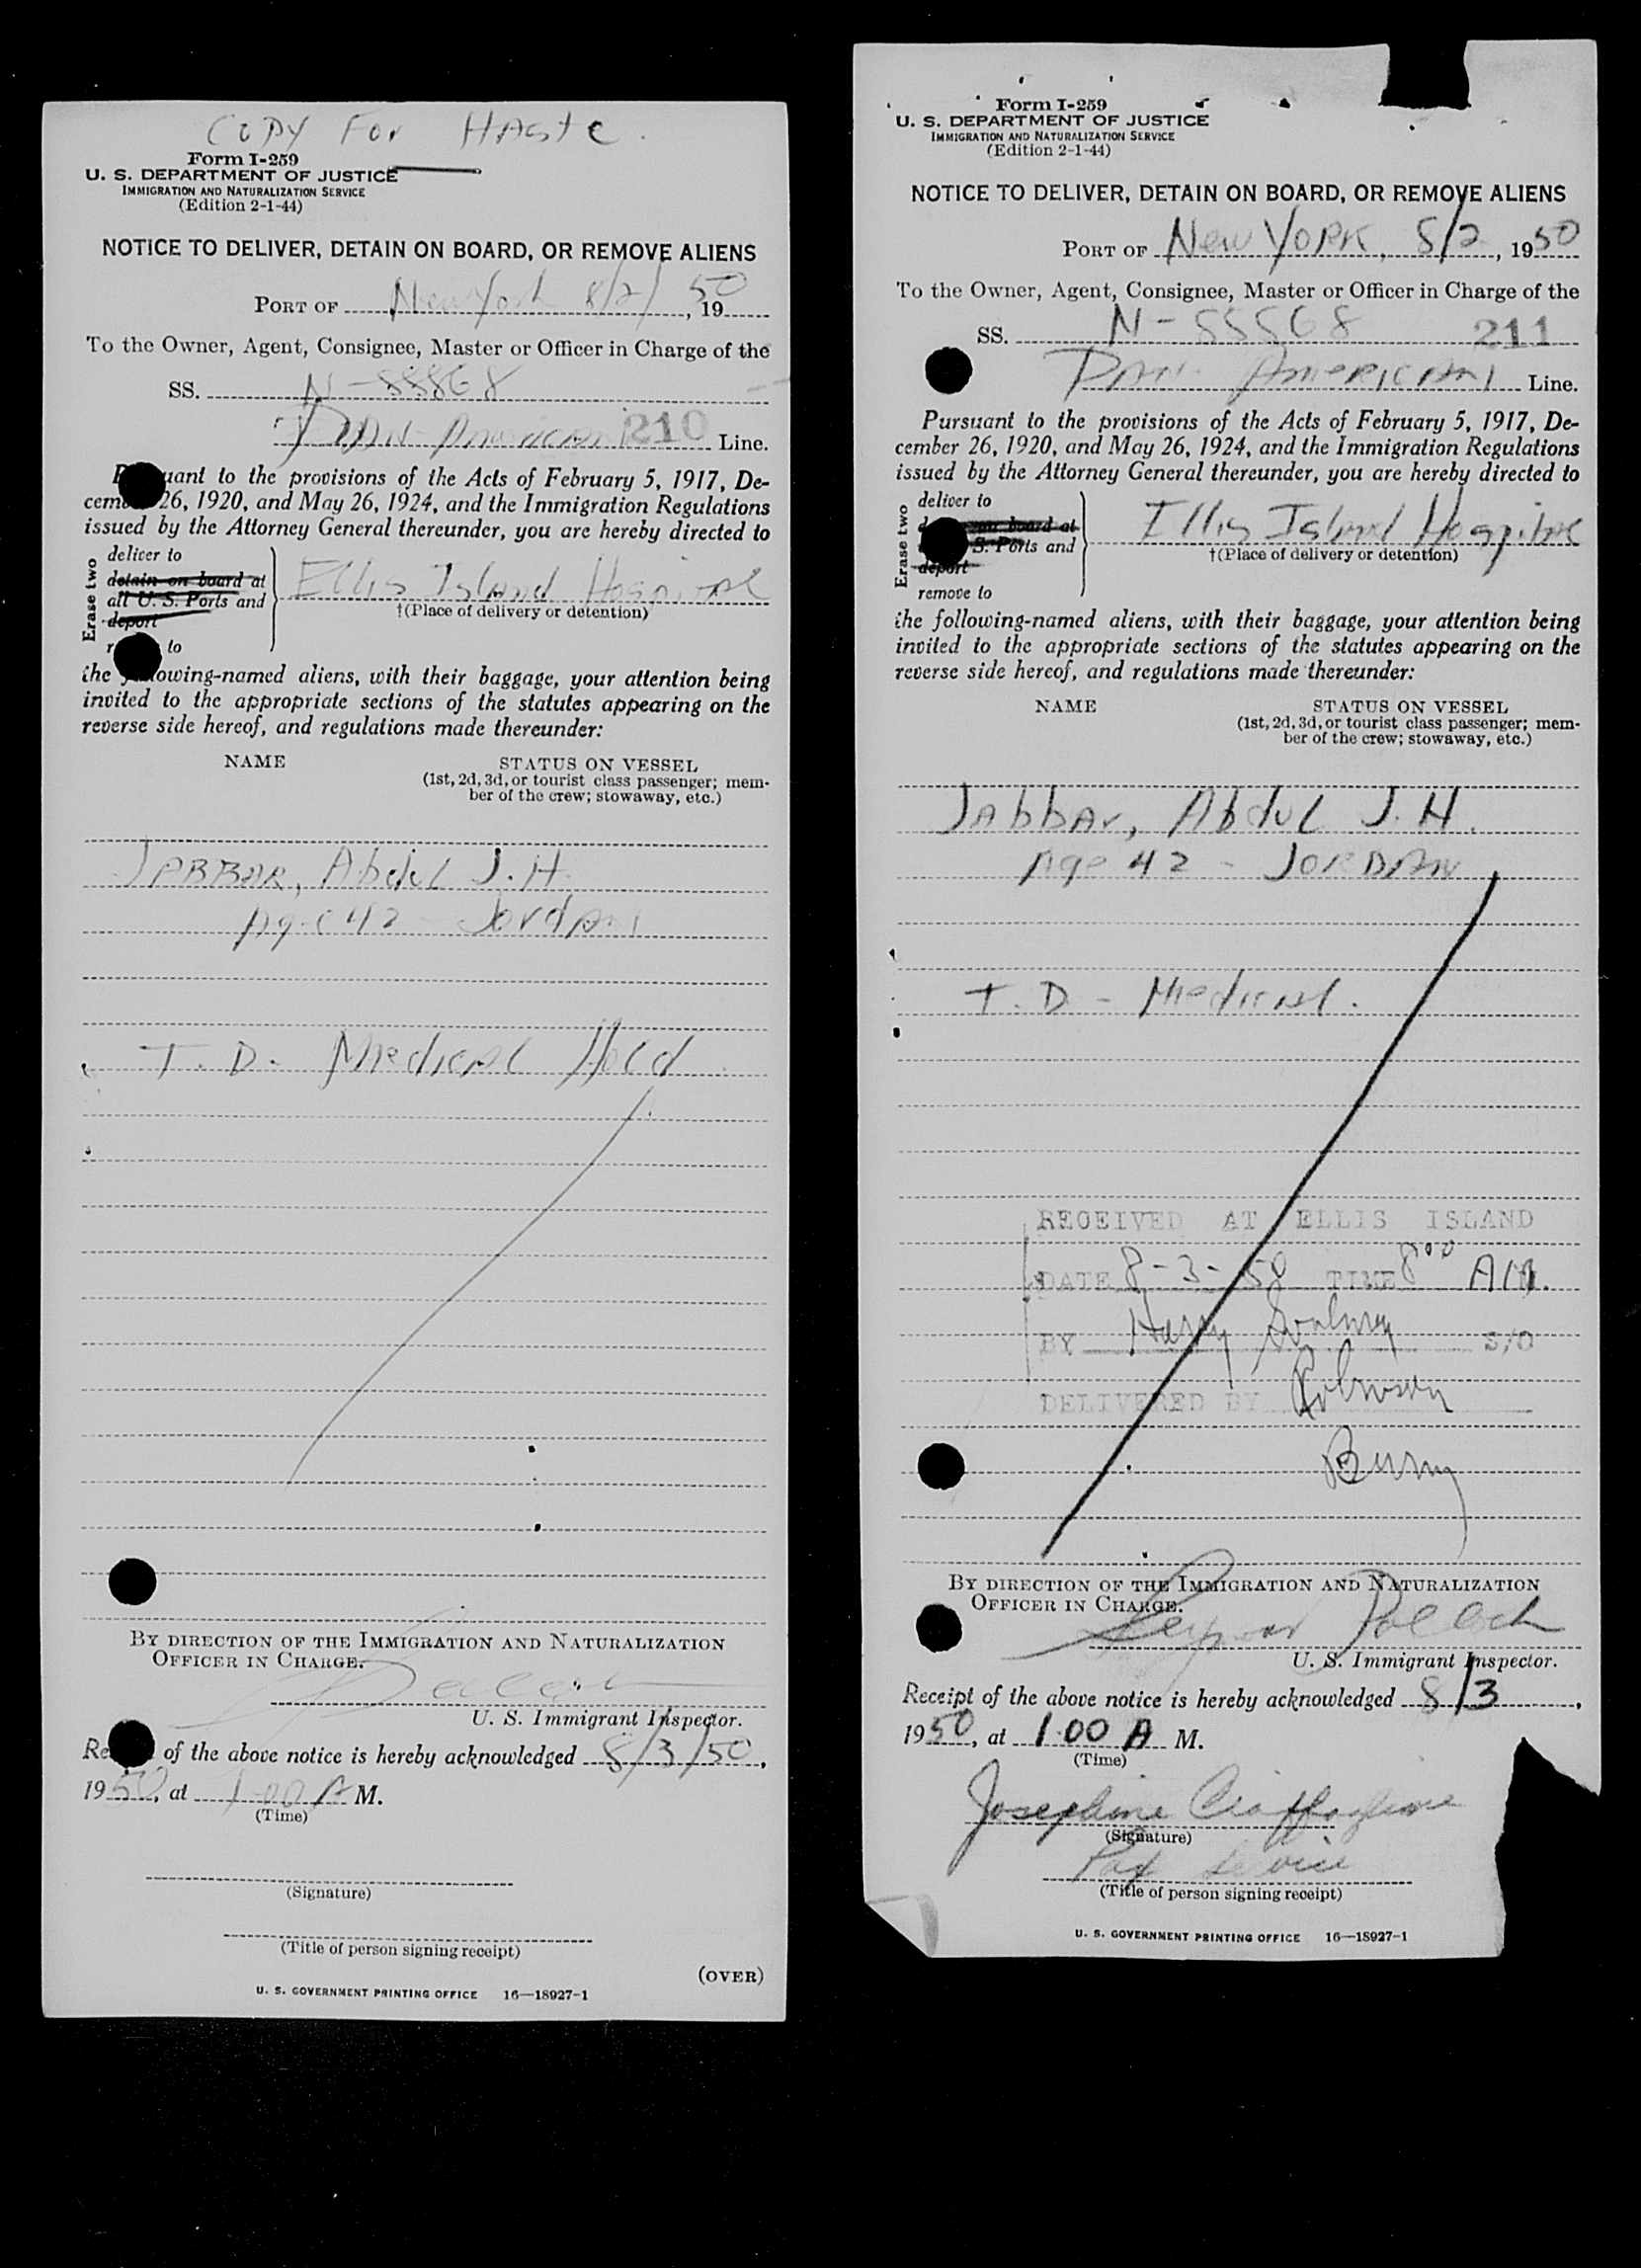 COPY For HAste.
Form I-259
U. S. DEPARTMENT OF JUSTICE
IMMIGRATION AND NATURALIZATION SERVICE
(Edition 2-1-44)
NOTICE TO DELIVER, DETAIN ON BOARD, OR REMOVE ALIENS
PORT OF New York 8/2/, 1950
To the Owner, Agent, Consignee, Master or Officer in Charge of the
SS. N-88868
PAN American 210 Line.
uant to the provisions of the Acts of February 5, 1917, De-
cem 26, 1920, and May 26, 1924, and the Immigration Regulations
issued by the Attorney General thereunder, you are hereby directed to
Erase two
deliver to
detain on board at
all U. S. Ports and
deport
to
Ellis Island Hospital
†(Place of delivery or detention)
the owing-named aliens, with their baggage, your attention being
invited to the appropriate sections of the statutes appearing on the
reverse side hereof, and regulations made thereunder:
NAME
STATUS ON VESSEL
(1st, 2d, 3d, or tourist class passenger; mem-
ber of the crew; stowaway, etc.)
JABBAR, Abdul J. H.
Age 42 Jordan
T. D. Medical Hold
BY DIRECTION OF THE IMMIGRATION AND NATURALIZATION
OFFICER IN CHARGE.
U. S. Immigrant Inspector.
Re of the above notice is hereby acknowledged 8/3/50,
1950, at 1 00 A M.
(Time)
(Signature)
(Title of person signing receipt)
(OVER)
U. S. GOVERNMENT PRINTING OFFICE 16—18927-1
Form I-259
U. S. DEPARTMENT OF JUSTICE
IMMIGRATION AND NATURALIZATION SERVICE
(Edition 2-1-44)
NOTICE TO DELIVER, DETAIN ON BOARD, OR REMOVE ALIENS
PORT OF New York, 8/2, 1950
To the Owner, Agent, Consignee, Master or Officer in Charge of the
SS. N-88868 211
PAN AmericAN Line.
Pursuant to the provisions of the Acts of February 5, 1917, De-
cember 26, 1920, and May 26, 1924, and the Immigration Regulations
issued by the Attorney General thereunder, you are hereby directed to
Erase two
deliver to
on board at
S. Ports and
deport
remove to
Ellis Island Hospital
†(Place of delivery or detention)
the following-named aliens, with their baggage, your attention being
invited to the appropriate sections of the statutes appearing on the
reverse side hereof, and regulations made thereunder:
NAME
STATUS ON VESSEL
(1st, 2d, 3d, or tourist class passenger; mem-
ber of the crew; stowaway, etc.)
Jabbar, Abdul J. H.
Age 42 - JORDAN
T. D - Medical.
RECEIVED AT ELLIS ISLAND
DATE 8-3-50 TIME 8⁰⁰ AM.
BY Harry S/O
DELIVERED BY Robinson
BY DIRECTION OF THE IMMIGRATION AND NATURALIZATION
OFFICER IN CHARGE.
Seymour Pollock
U. S. Immigrant Inspector.
Receipt of the above notice is hereby acknowledged 8/3,
1950, at 1:00 A M.
(Time)
Josephine
(Signature)
Pax Service
(Title of person signing receipt)
U. S. GOVERNMENT PRINTING OFFICE 16—18927-1